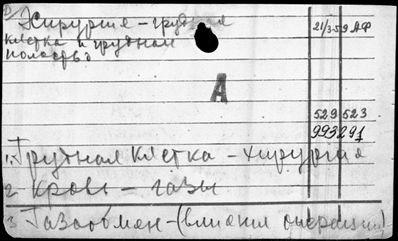 Хирургия - грудная
клетка и грудная
полость
21/3-59 АФ
А
529 523
993291
1. Грудная клетка - хирургия
2 Кровь - газы
3 Газообмен - (влияния операции)